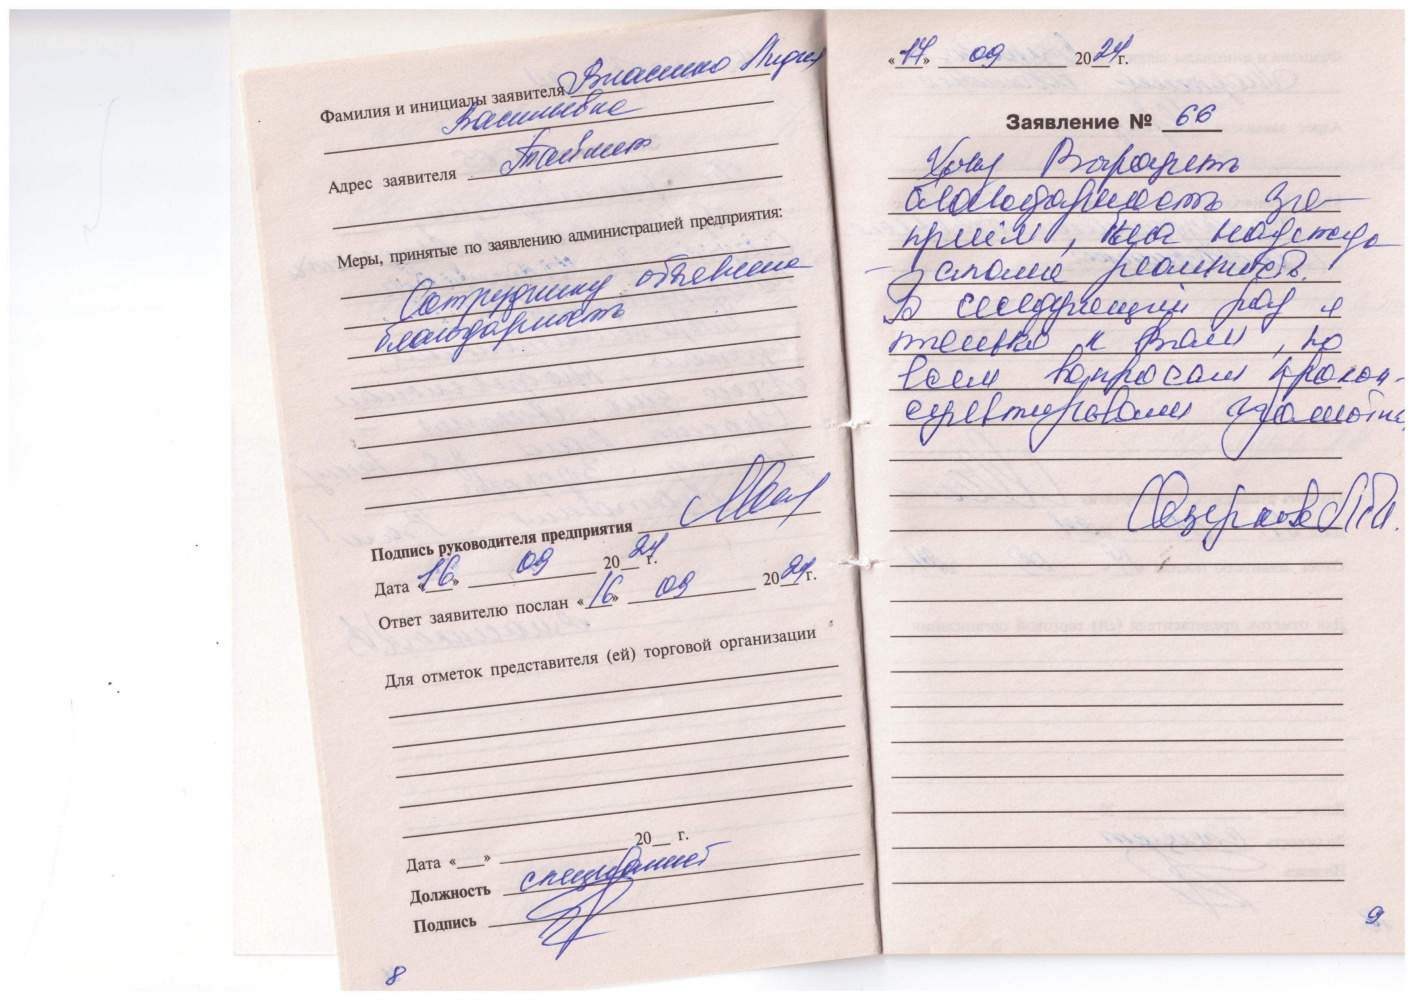 Фамилия и инициалы заявителя Власенко Лидия
Васильевна
Адрес заявителя Тайшет
Меры, принятые по заявлению администрацией предприятия:
Сотруднику объявлена
благодарность
Подпись руководителя предприятия
Дата «16» 09 2024 г.
Ответ заявителю послан «16» 09 2024 г.
Для отметок представителя (ей) торговой организации
Дата «__» 20__ г.
Должность специалист
Подпись
8
«17» 09 2024 г.
Заявление № 66
Хочу Выразить
благодарность за
приём,
В следующий раз я
только к Вам, по
всем вопросам прокон-
сультировали грамотно.
9